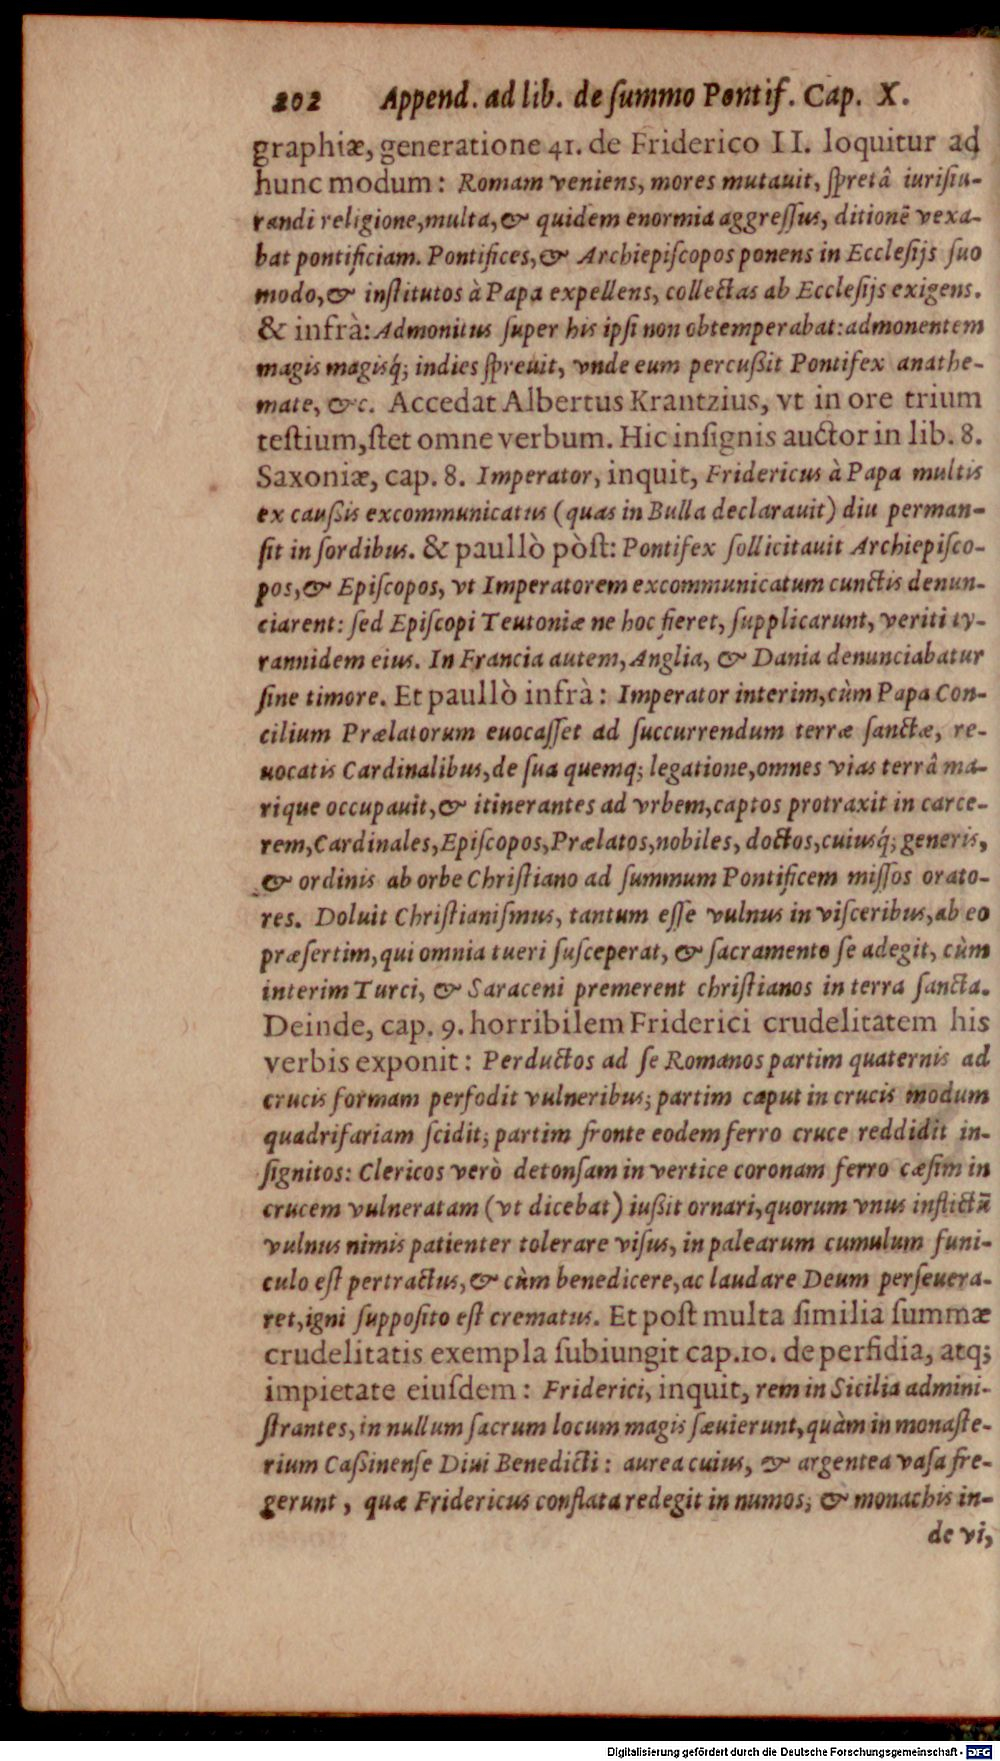 202 Append. ad lib. de ſummo Pontif. Cap. X.
graphiæ, generatione 41. de Friderico II. loquitur ad
hunc modum: Romam veniens, mores mutauit, ſpretâ iuriſiu-
randi religione, multa, & quidem enormia aggreſſus, ditionē vexa-
bat pontificiam. Pontifices, & Archiepiſcopos ponens in Eccleſijs ſuo
modo, & inſtitutos à Papa expellens, collectas ab Eccleſijs exigens.
& infrà: Admonitus ſuper his ipſi non obtemperabat: admonentem
magis magisq́; indies ſpreuit, vnde eum percußit Pontifex anathe-
mate, &c. Accedat Albertus Krantzius, vt in ore trium
teſtium, ſtet omne verbum. Hic inſignis auctor in lib. 8.
Saxoniæ, cap. 8. Imperator, inquit, Fridericus à Papa multis
ex caußis excommunicatus (quas in Bulla declarauit) diu perman-
ſit in ſordibus. & paullò pòſt: Pontifex ſollicitauit Archiepiſco-
pos, & Epiſcopos, vt Imperatorem excommunicatum cunctis denun-
ciarent: ſed Epiſcopi Teutoniæ ne hoc fieret, ſupplicarunt, veriti ty-
rannidem eius. In Francia autem, Anglia, & Dania denunciabatur
ſine timore. Et paullò infrà: Imperator interim, cùm Papa Con-
cilium Prælatorum euocaſſet ad ſuccurrendum terræ ſanctæ, re-
uocatis Cardinalibus, de ſua quemq; legatione, omnes vias terrâ ma-
rique occupauit, & itinerantes ad vrbem, captos protraxit in carce-
rem, Cardinales, Epiſcopos, Prælatos, nobiles, doctos, cuiusq́; generis,
& ordinis ab orbe Chriſtiano ad ſummum Pontificem miſſos orato-
res. Doluit Chriſtianiſmus, tantum eſſe vulnus in viſceribus, ab eo
præſertim, qui omnia tueri ſuſceperat, & ſacramento ſe adegit, cùm
interim Turci, & Saraceni premerent chriſtianos in terra ſancta.
Deinde, cap. 9. horribilem Friderici crudelitatem his
verbis exponit: Perductos ad ſe Romanos partim quaternis ad
crucis formam perfodit vulneribus; partim caput in crucis modum
quadrifariam ſcidit; partim fronte eodem ferro cruce reddidit in-
ſignitos: Clericos verò detonſam in vertice coronam ferro cæſim in
crucem vulneratam (vt dicebat) iußit ornari, quorum vnus inflictū
vulnus nimis patienter tolerare viſus, in palearum cumulum funi-
culo eſt pertractus, & cùm benedicere, ac laudare Deum perſeuera-
ret, igni ſuppoſito eſt crematus. Et poſt multa ſimilia ſummæ
crudelitatis exempla ſubiungit cap. 10. de perfidia, atq;
impietate eiuſdem: Friderici, inquit, rem in Sicilia admini-
ſtrantes, in nullum ſacrum locum magis ſæuierunt, quàm in monaſte-
rium Caßinenſe Diui Benedicti: aurea cuius, & argentea vaſa fre-
gerunt, quæ Fridericus conflata redegit in numos; & monachis in-
de vi,
Digitalisierung gefördert durch die Deutsche Forschungsgemeinschaft - DFG